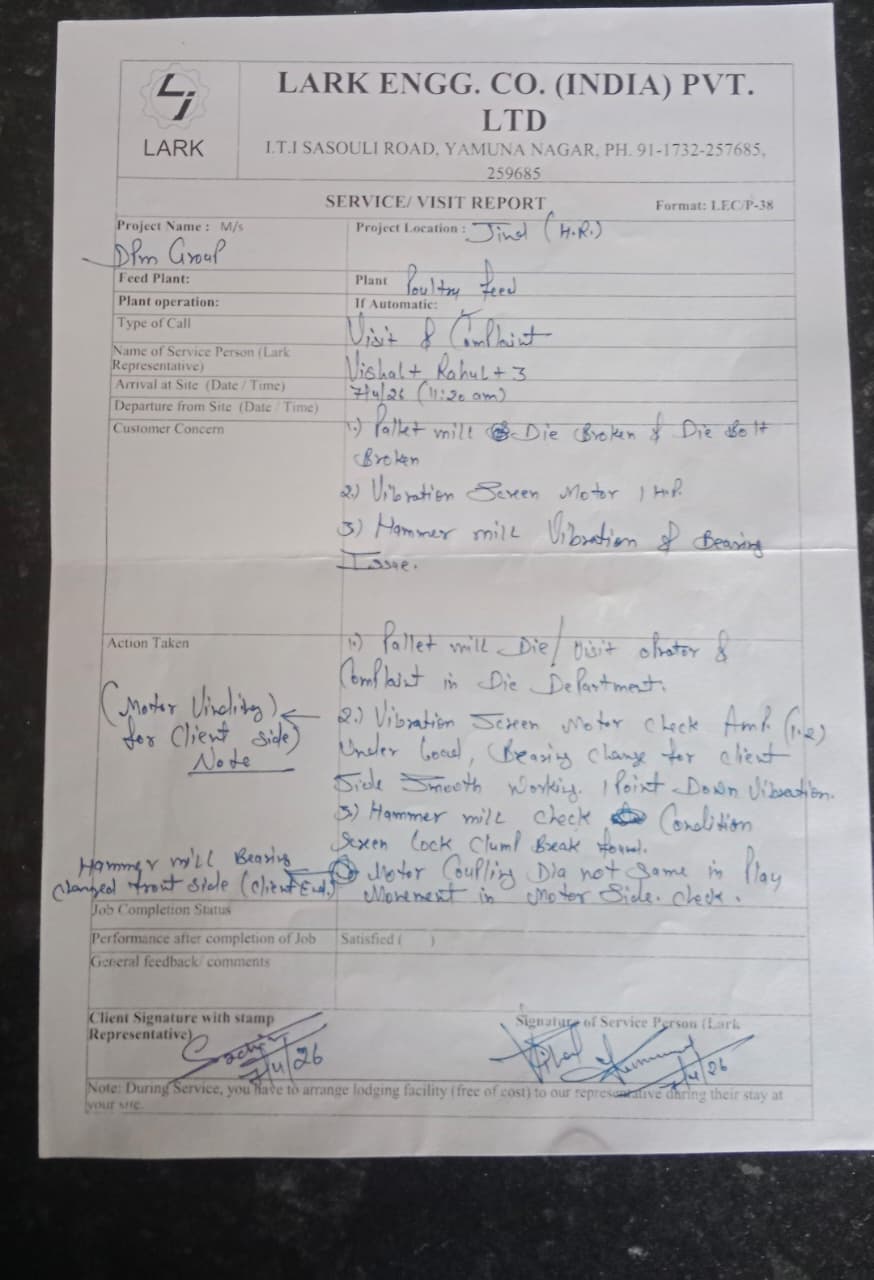 LARK
LARK ENGG. CO. (INDIA) PVT.
LTD
I.T.I SASOULI ROAD, YAMUNA NAGAR, PH. 91-1732-257685,
259685
SERVICE/ VISIT REPORT
Format: LEC/P-38
Project Name : M/s
Dpm Group
Project Location : Jind (H.R.)
Feed Plant:
Plant Poultry Feed
Plant operation:
If Automatic:
Type of Call
Visit & Complaint
Name of Service Person (Lark
Representative)
Vishal + Rahul + 3
Arrival at Site (Date / Time)
7/4/26 (11:20 am)
Departure from Site (Date / Time)
Customer Concern
1.) Pallet mill Die Broken & Die Bolt
Broken
2.) Vibration Screen Motor 1 H.P.
3.) Hammer mill Vibration & Bearing
Issue.
Action Taken
1.) Pallet mill Die/ Visit &
Complaint in Die Department.
(Motor
for Client Side)
Note
2.) Vibration Screen Motor Check Amp. (1.2)
Under Load, Bearing Change for client
Side Smooth Working. 1 Point Down Vibration.
3.) Hammer mill Check Condition
Screen Lock Clump Break found.
Hammer mill Bearing
Changed front Side (Client End.)
Motor Coupling Dia not Same in Play
Movement in Motor Side. Check.
Job Completion Status
Performance after completion of Job
Satisfied ( )
General feedback/ comments
Client Signature with stamp
Representative)
7/4/26
Signature of Service Person (Lark
7/4/26
Note: During Service, you have to arrange lodging facility (free of cost) to our representative during their stay at
your site.